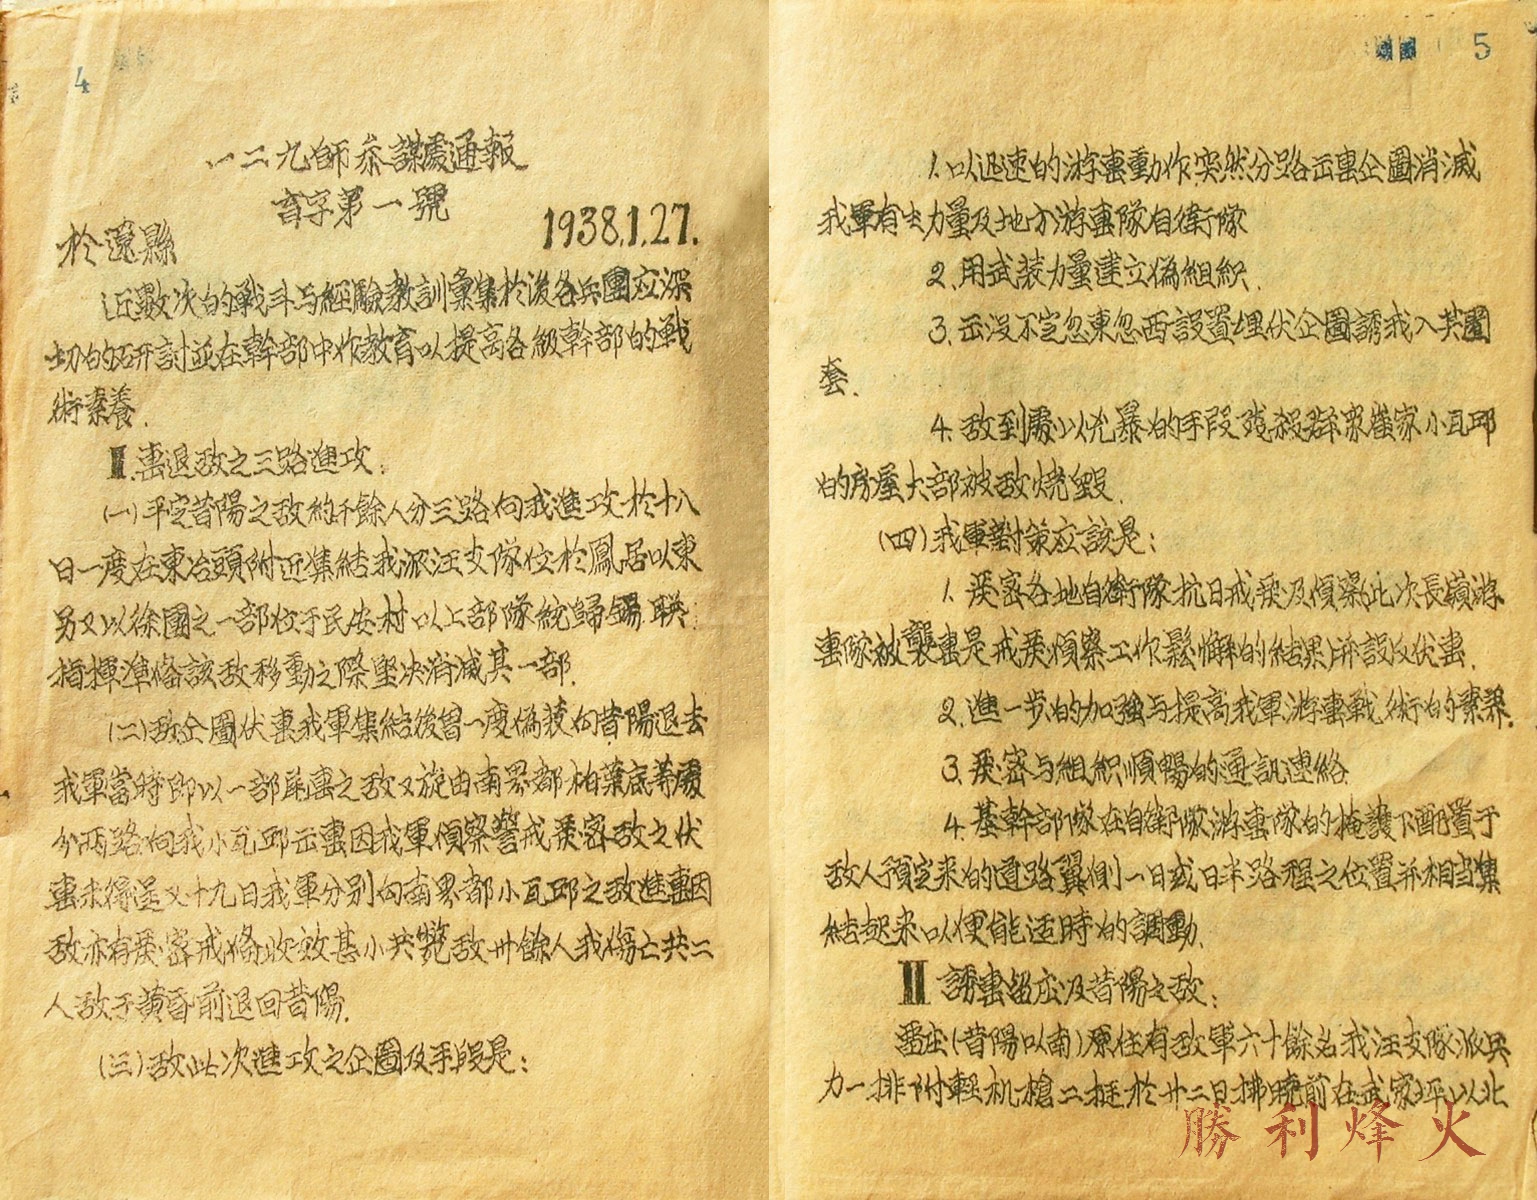 4
一二九師参謀處通報
育字第一號
1938.1.27.
於遼縣
近數次的戰斗与經驗教訓彙集於後各兵團应深
切的研討並在幹部中作教育以提高各級幹部的戰
術素養.
I.击退敌之三路進攻:
(一)平定昔陽之敌約千餘人分三路向我進攻於十八
日一度在東冶頭附近集結我派汪支隊位於鳳居以東
另又以徐國之一部位于民安村以上部隊統歸 聯
指揮準備該敌移動之際堅决消滅其一部.
(二)敌企圖伏击我軍集結後曾一度偽装向昔陽退去
我軍當時即以一部尾击之敌又旋由南界都柏葉底等處
分两路向我小瓦邱击因我軍偵察警戒嚴密敌之伏
击未得逞又十九日我軍分别向南界都小瓦邱之敌進击因
敌亦有嚴密戒備收效甚小共斃敌卅餘人我傷亡共二
人敌于黄昏前退回昔陽.
(三)敌此次進攻之企圖及手段是:
5
1.以迅速的游击動作突然分路击企圖消滅
我軍有生力量及地方游击隊自衛隊
2.用武装力量建立偽組织.
3.击没不定忽東忽西設置埋伏企圖誘我入其圈
套.
4.敌到處以兇暴的手段残殺群衆崔家小瓦邱
的房屋大部被敌烧毁.
(四)我軍對策应該是:
1.嚴密各地自衛隊抗日戒嚴及偵察(此次長嶺游
击隊被襲击是戒嚴偵察工作鬆懈的結果)并設反伏击.
2.進一步的加強与提高我軍游击戰術的素養.
3.嚴密与組织順暢的通訊連絡
4.基幹部隊在自衛隊游击隊的掩護下配置于
敌人預定来的道路翼側一日或日半路程之位置并相当集
結起来以便能适時的調動.
II 誘击留庄及昔陽之敌:
留庄(昔陽以南)原住有敌軍六十餘名我汪支隊派兵
力一排附輕机槍二挺於廿二日拂曉前在武家坪以北
勝利烽火